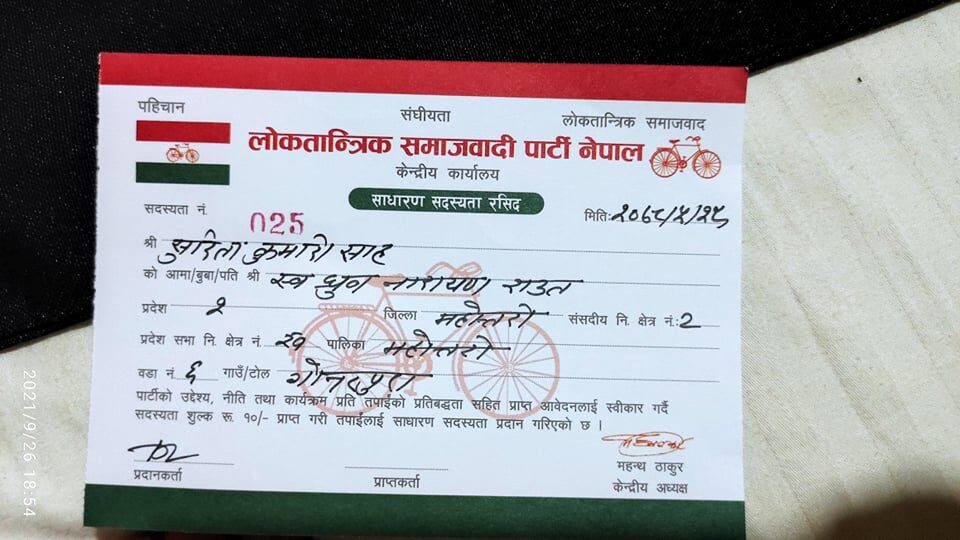 पहिचान संघीयता लोकतान्त्रिक समाजवाद
लोकतान्त्रिक समाजवादी पार्टी नेपाल
केन्द्रीय कार्यालय
साधारण सदस्यता रसिद
सदस्यता नं. 025 मिति:२०७८/५/२५
श्री सुरिता कुमारी साह
को आमा/बुबा/पति श्री स्व ध्रुव नारायण राउत
प्रदेश २ जिल्ला महोत्तरी संसदीय नि. क्षेत्र नं.: 2
प्रदेश सभा नि. क्षेत्र नं. २ख पालिका महोत्तरी
वडा नं. ६ गाउँ/टोल
पार्टीको उद्देश्य, नीति तथा कार्यक्रम प्रति तपाईको प्रतिबद्धता सहित प्राप्त आवेदनलाई स्वीकार गर्दै
सदस्यता शुल्क रू. १०/- प्राप्त गरी तपाईलाई साधारण सदस्यता प्रदान गरिएको छ ।
प्रदानकर्ता प्राप्तकर्ता महन्थ ठाकुर
केन्द्रीय अध्यक्ष
2021/9/26 18:54